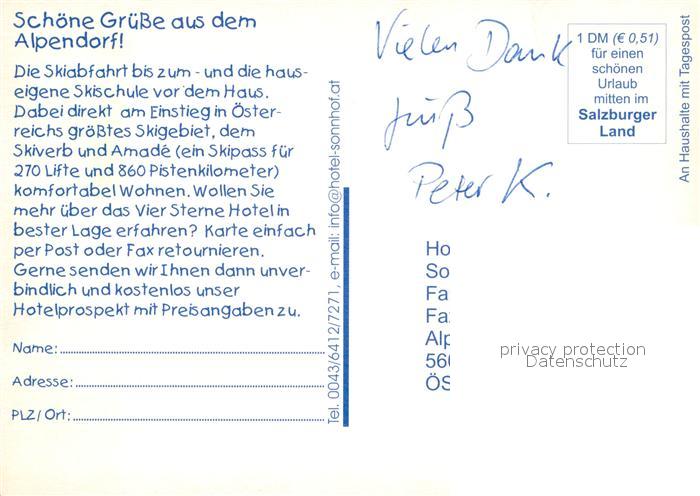 Schöne Grüße aus dem
Alpendorf!
Die Skiabfahrt bis zum - und die haus-
eigene Skischule vor dem Haus.
Dabei direkt am Einstieg in Öster-
reichs größtes Skigebiet, dem
Skiverb und Amadé (ein Skipass für
270 Lifte und 860 Pistenkilometer)
komfortabel Wohnen. Wollen Sie
mehr über das Vier Sterne Hotel in
bester Lage erfahren? Karte einfach
per Post oder Fax retournieren.
Gerne senden wir Ihnen dann unver-
bindlich und kostenlos unser
Hotelprospekt mit Preisangaben zu.
Name:
Adresse:
PLZ/Ort:
Tel. 0043/6412/7271, e-mail: info@hotel-sonnhof.at
Vielen Dank
Gruß
Peter K.
1 DM (€ 0,51)
für einen
schönen
Urlaub
mitten im
Salzburger
Land
An Haushalte mit Tagespost
Ho
So
Fa
Fa
Alp
56
ÖS
privacy protection
Datenschutz